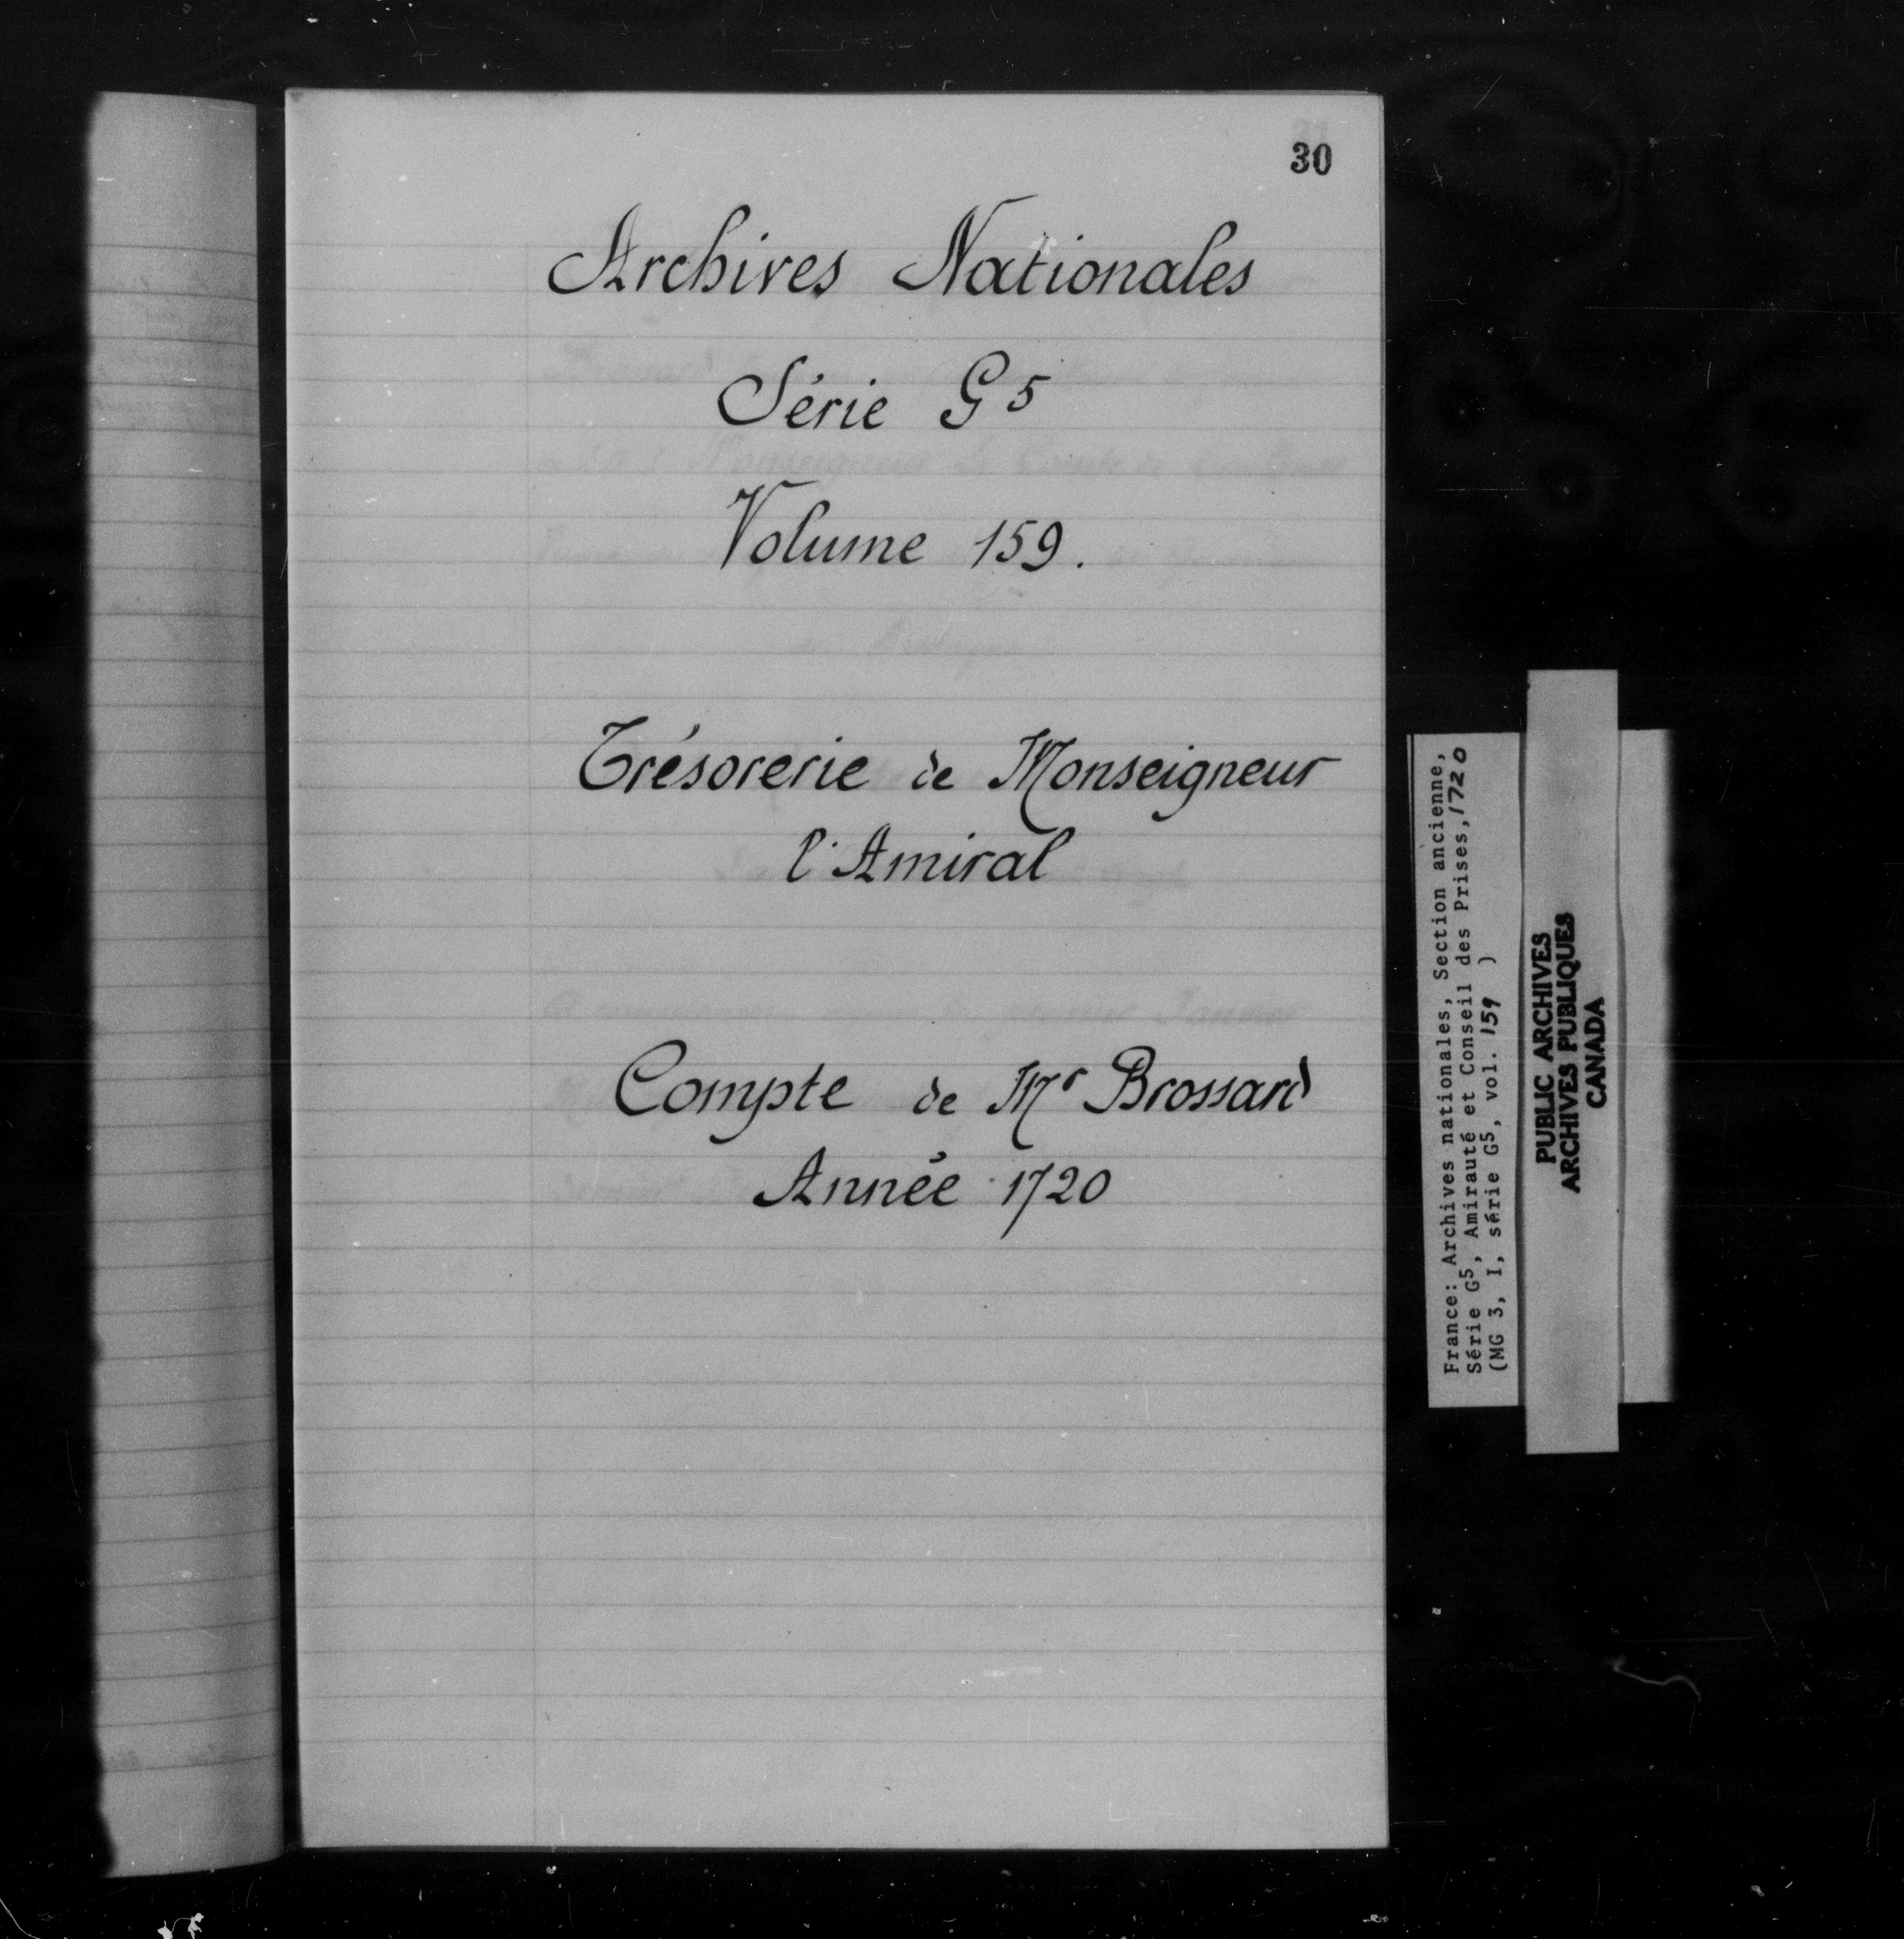 30
Archives Nationales
Série G5
Volume 159.
Trésorerie de Monseigneur
l'Amiral
Compte de Mr Brossard
Année 1720
France: Archives nationales, Section ancienne,
Série G5, Amirauté et Conseil des Prises, 1720
(MG 3, I, série G5, vol. 159 )
PUBLIC ARCHIVES
ARCHIVES PUBLIQUES
CANADA